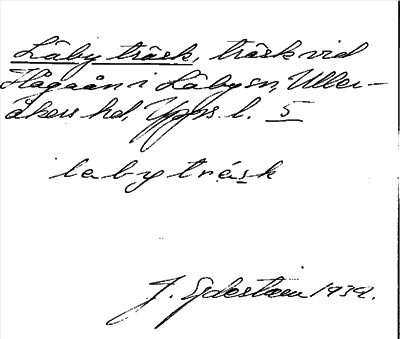 Läby träsk, träsk vid
Hågaån i Läby sn, Uller-
åkers hd, Upps. l. 5
labytrásk
J. 1939.